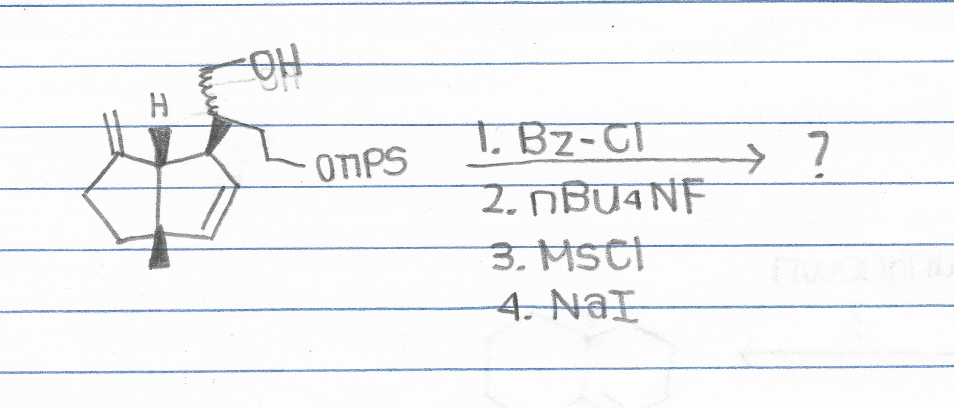 OH
H
OTIPS
1. Bz-Cl
?
2. nBu4NF
3. MsCl
4. NaI